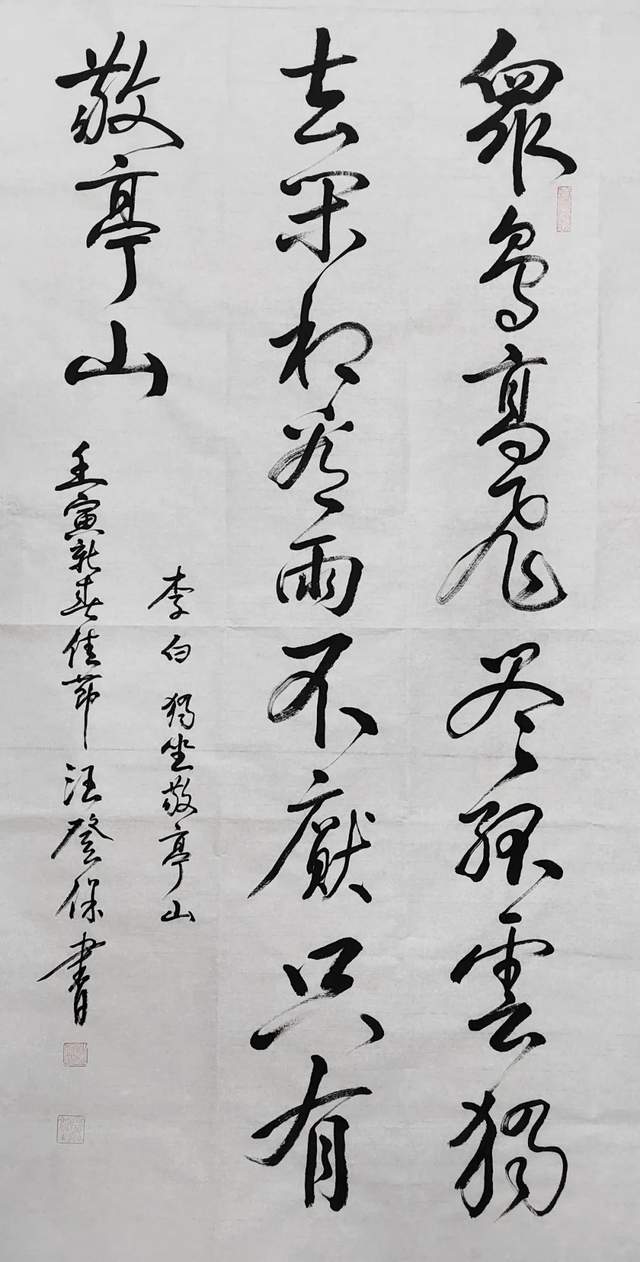 眾鳥高飛盡孤雲獨
去閑相看兩不厭只有
敬亭山
李白 獨坐敬亭山
壬寅新春佳節 汪登保書